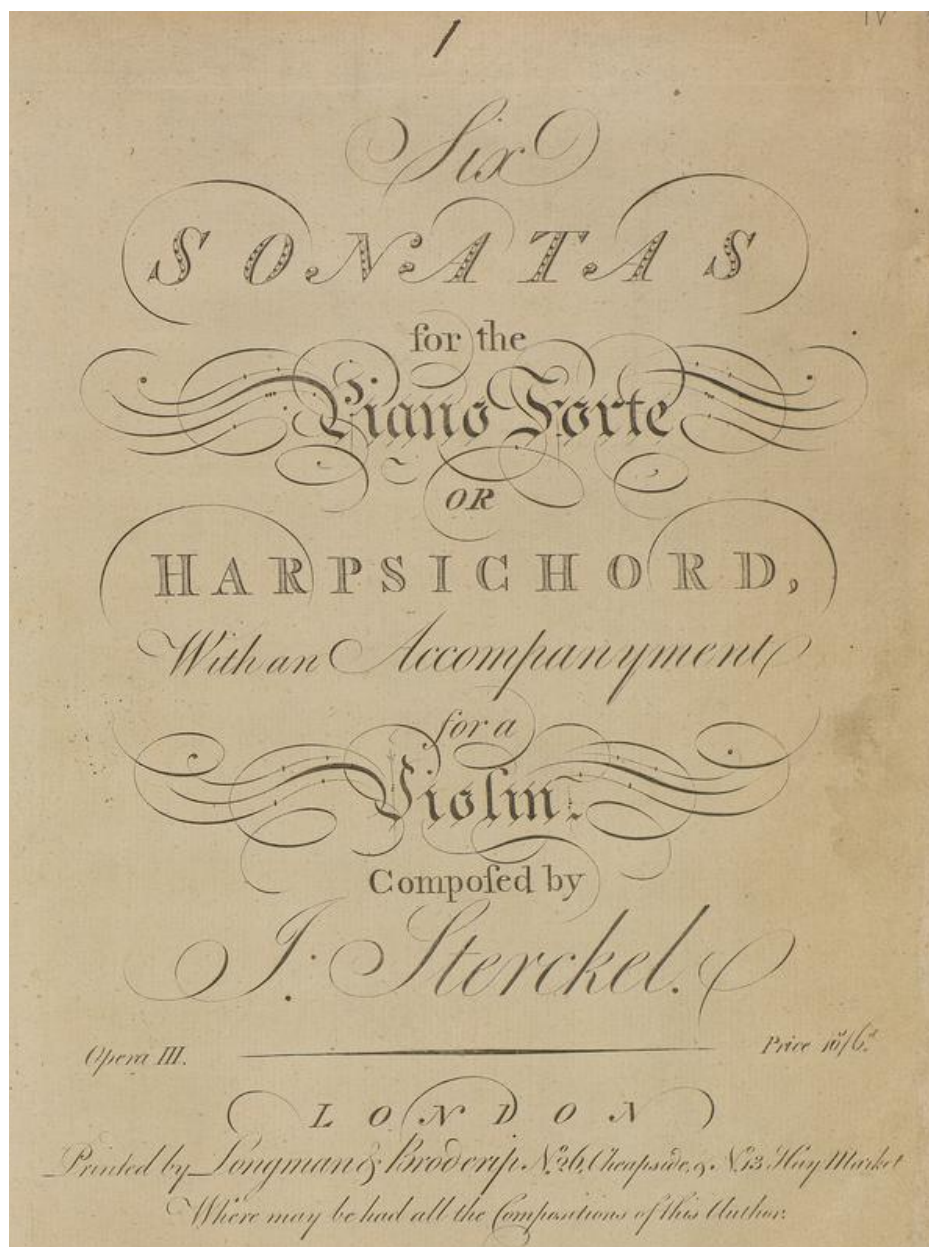 1
IV
Six
SONATAS
for the
Piano Forte
OR
HARPSICHORD,
With an Accompanyment
for a
Violin.
Compoſed by
J. Sterckel.
Opera III.
Price 10ˢ/6.ᵈ
LONDON
Printed by Longman & Broderip Nº. 26, Cheapside, & Nº. 13 Hay Market
Where may be had all the Compositions of this Author.